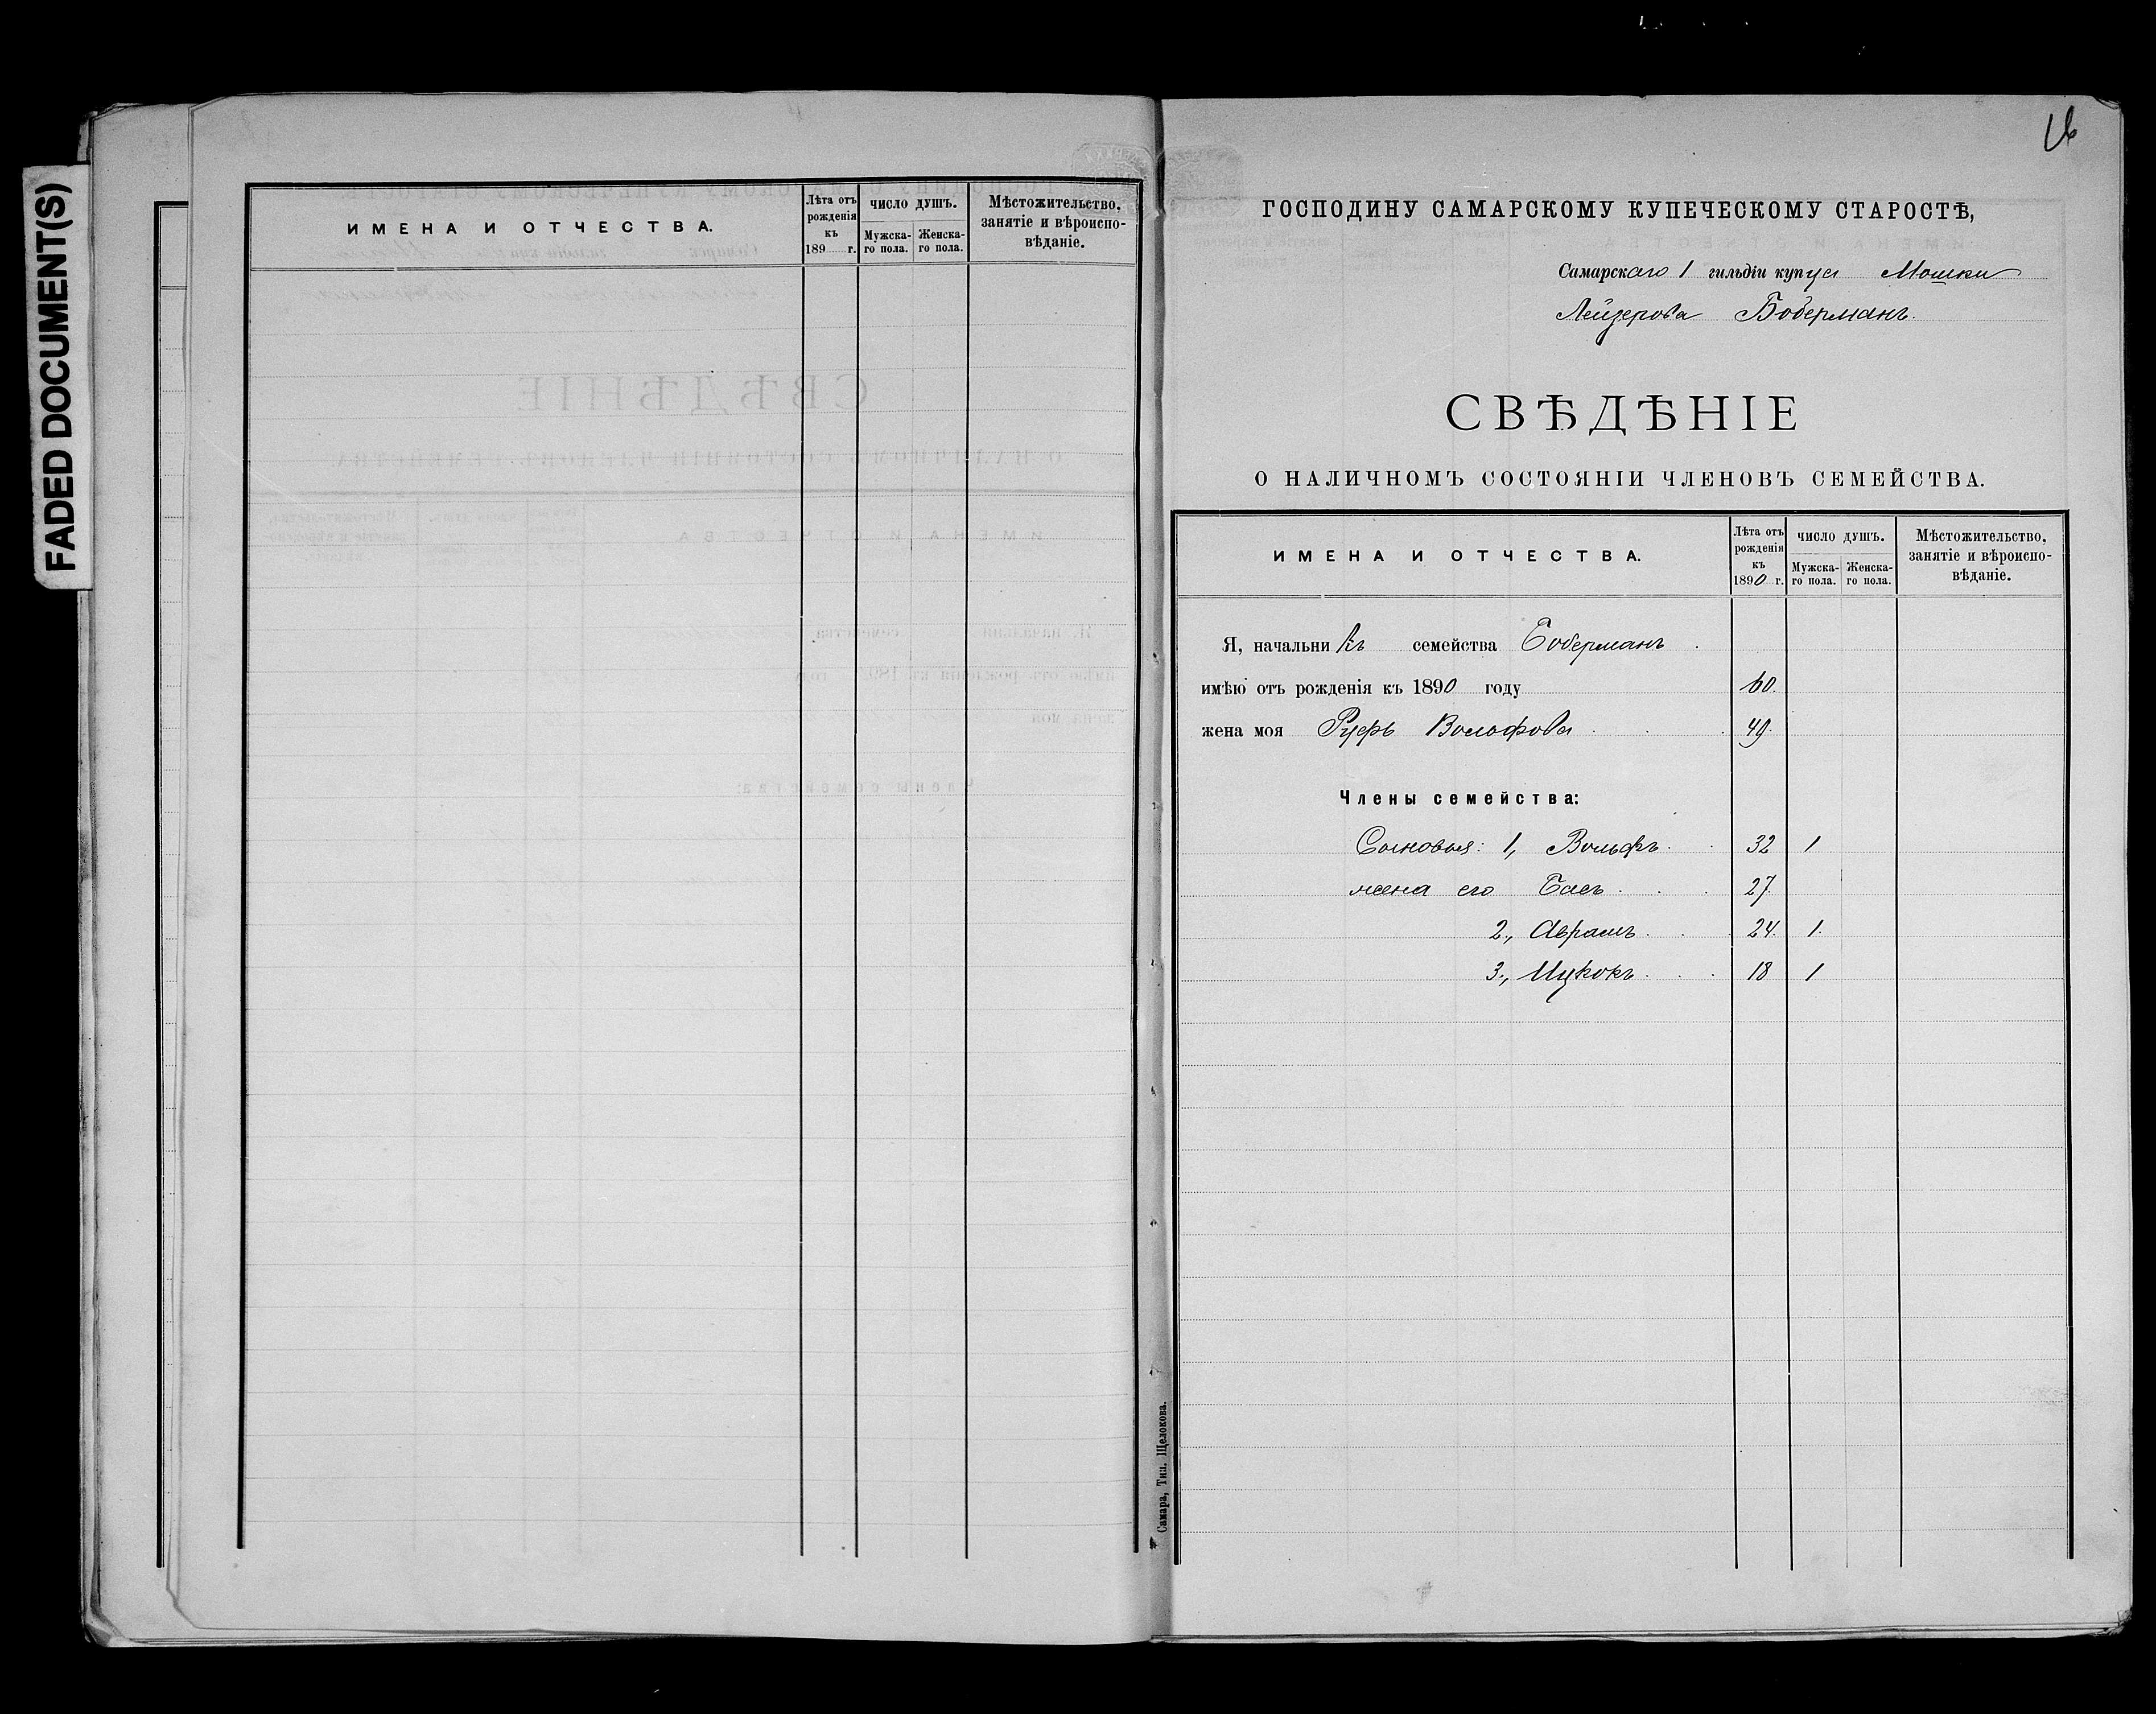 FADED DOCUMENT(S)
ИМЕНА И ОТЧЕСТВА.
Лѣта отъ рожденія къ 189 г.
ЧИСЛО ДУШЪ.
Мужска-го пола.
Женска-го пола.
Мѣстожительство, занятіе и вѣроиспо-вѣданіе.
ГОСПОДИНУ САМАРСКОМУ КУПЕЧЕСКОМУ СТАРОСТѢ,
Самарскаго 1 гильдіи купца Мошки
Лейзерова Боберманъ.
СВѢДѢНІЕ
О НАЛИЧНОМЪ СОСТОЯНІИ ЧЛЕНОВЪ СЕМЕЙСТВА.
ИМЕНА И ОТЧЕСТВА.
Лѣта отъ рожденія къ 1890 г.
ЧИСЛО ДУШЪ.
Мужска-го пола.
Женска-го пола.
Мѣстожительство, занятіе и вѣроиспо-вѣданіе.
Я, начальникъ семейства Боберманъ
имѣю отъ рожденія къ 1890 году 60.
жена моя Руфь Вольфова 49.
Члены семейства:
Сыновья: 1, Вольфъ 32 1
жена его Бася 27.
2., Аврамъ 24. 1.
3., Ицкокъ 18 1
Самара, Тип. Щелокова.